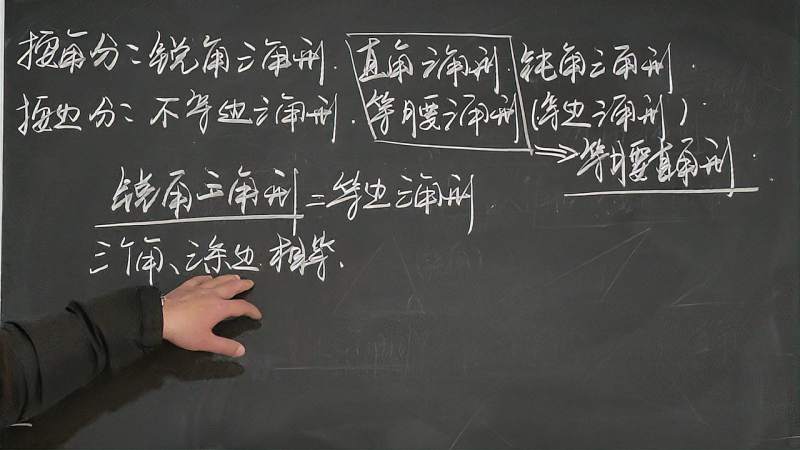 按角分：锐角三角形．直角三角形．钝角三角形．
按边分：不等边三角形．等腰三角形(等边三角形)．
等腰直角形．
锐角三角形=等边三角形
三个角、三条边相等．